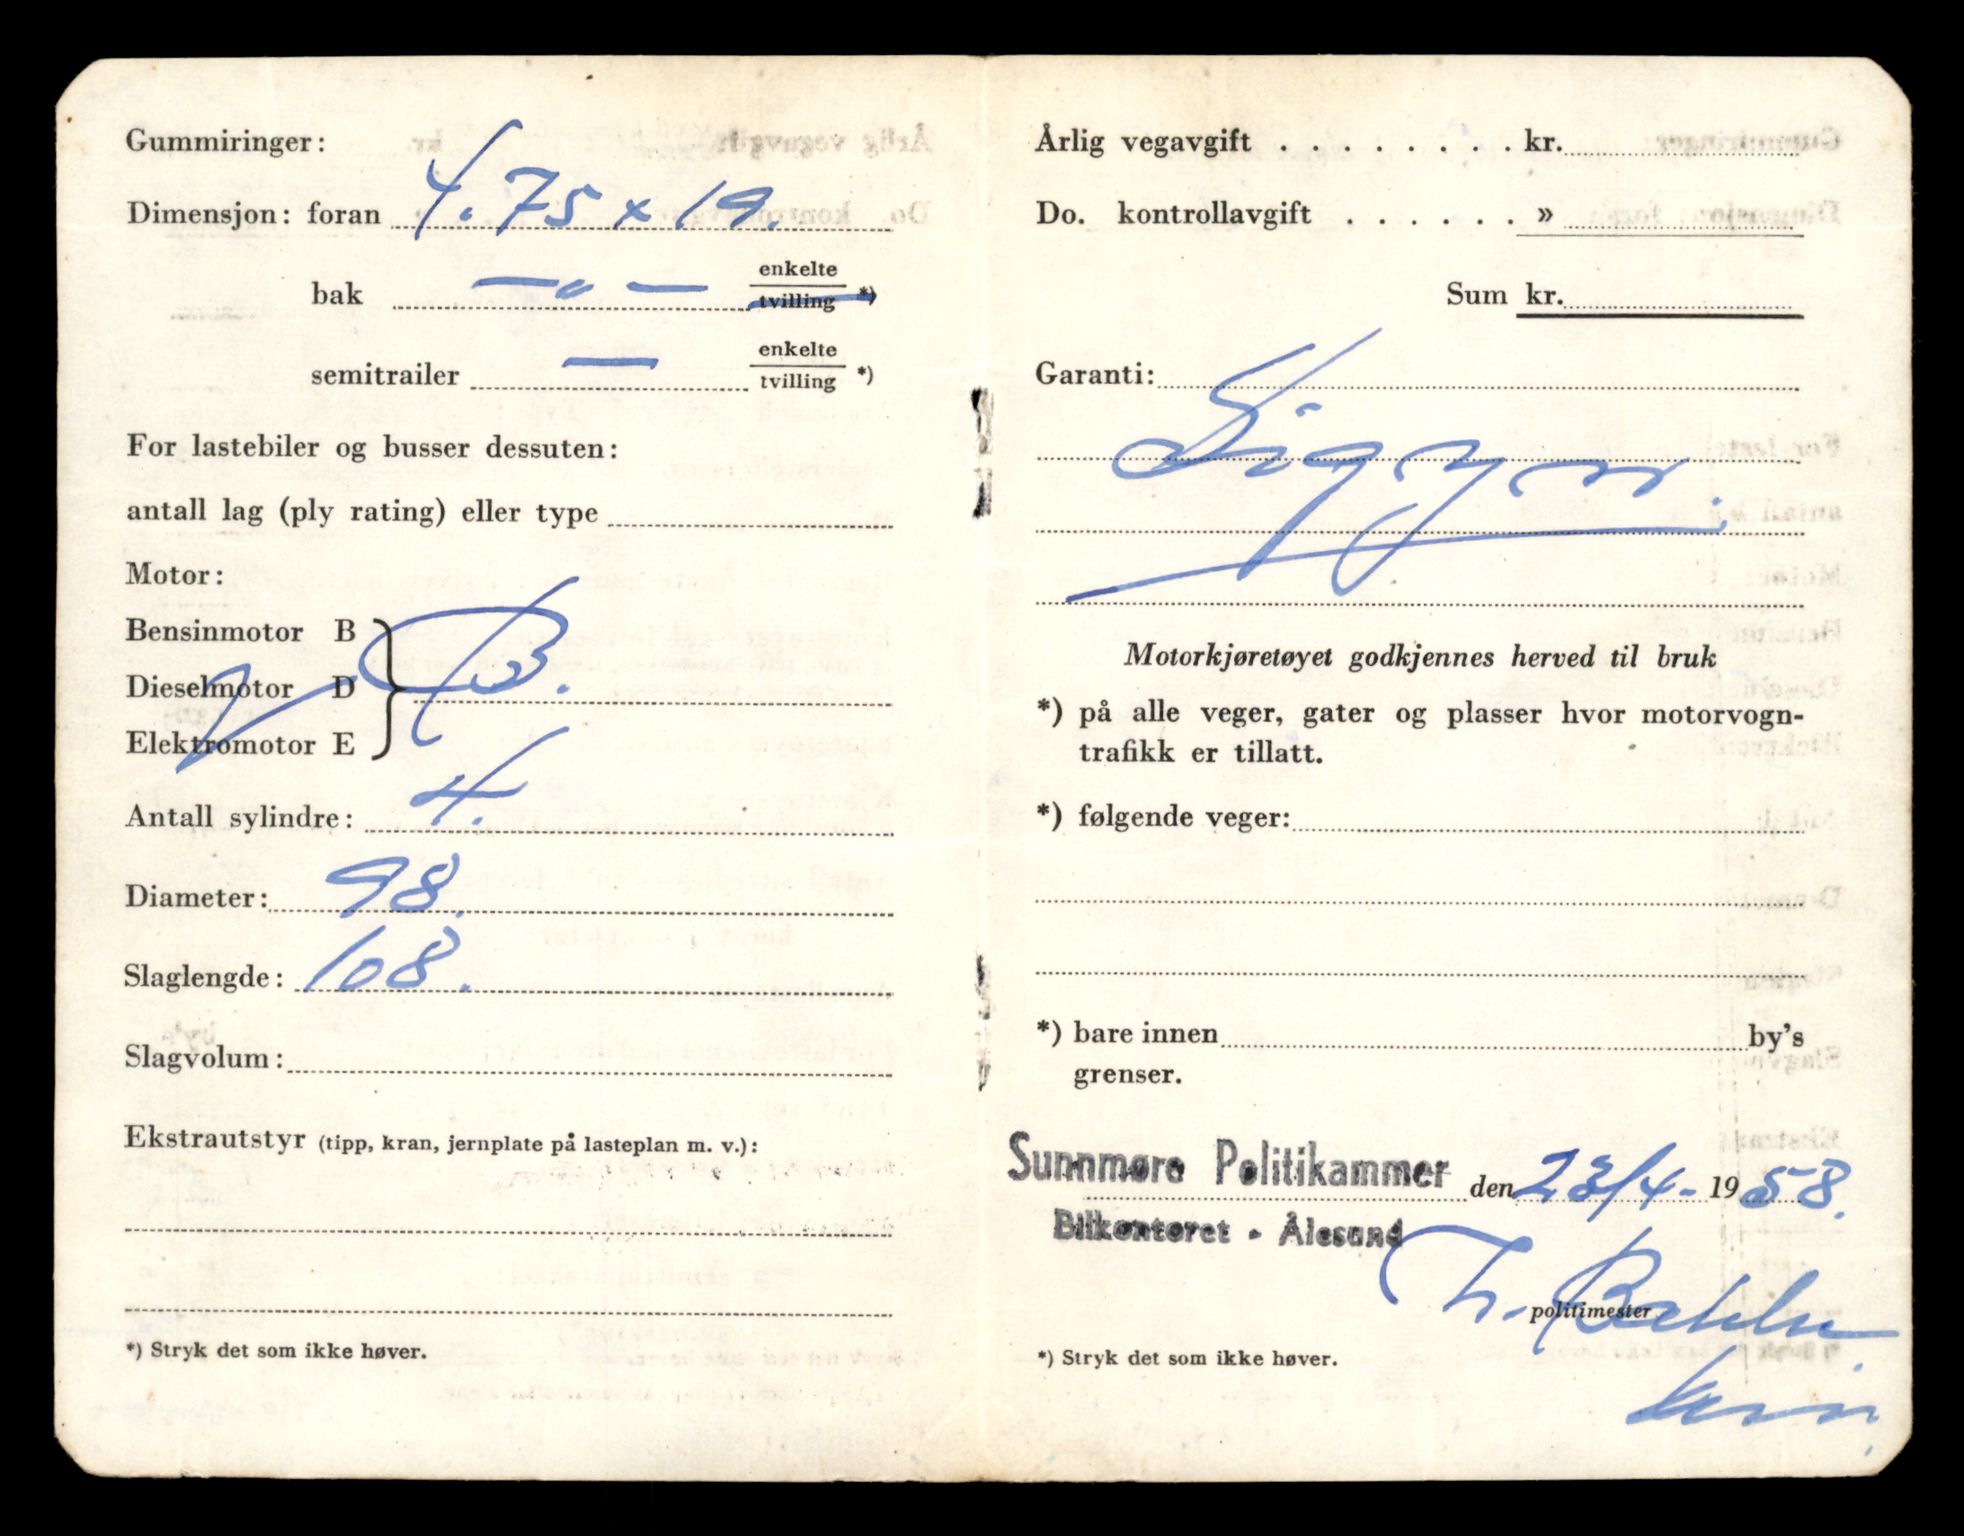 Gummiringer:
Dimensjon: foran 4.75 x 19.
bak — " — enkelte
tvilling *)
semitrailer — enkelte
tvilling *)
For lastebiler og busser dessuten:
antall lag (ply rating) eller type
Motor:
Bensinmotor B
Dieselmotor D B.
Elektromotor E
Antall sylindre: 4.
Diameter: 98.
Slaglengde: 108.
Slagvolum:
Ekstrautstyr (tipp, kran, jernplate på lasteplan m. v.):
*) Stryk det som ikke høver.
Årlig vegavgift . . . . . . . . kr.
Do. kontrollavgift . . . . . . »
Sum kr.
Garanti:
Sigyn.
Motorkjøretøyet godkjennes herved til bruk
*) på alle veger, gater og plasser hvor motorvogn-
trafikk er tillatt.
*) følgende veger:
*) bare innen by's
grenser.
Sunnmøre Politikammer den 23/4- 1958.
Bilkontoret - Ålesund
politimester
*) Stryk det som ikke høver.